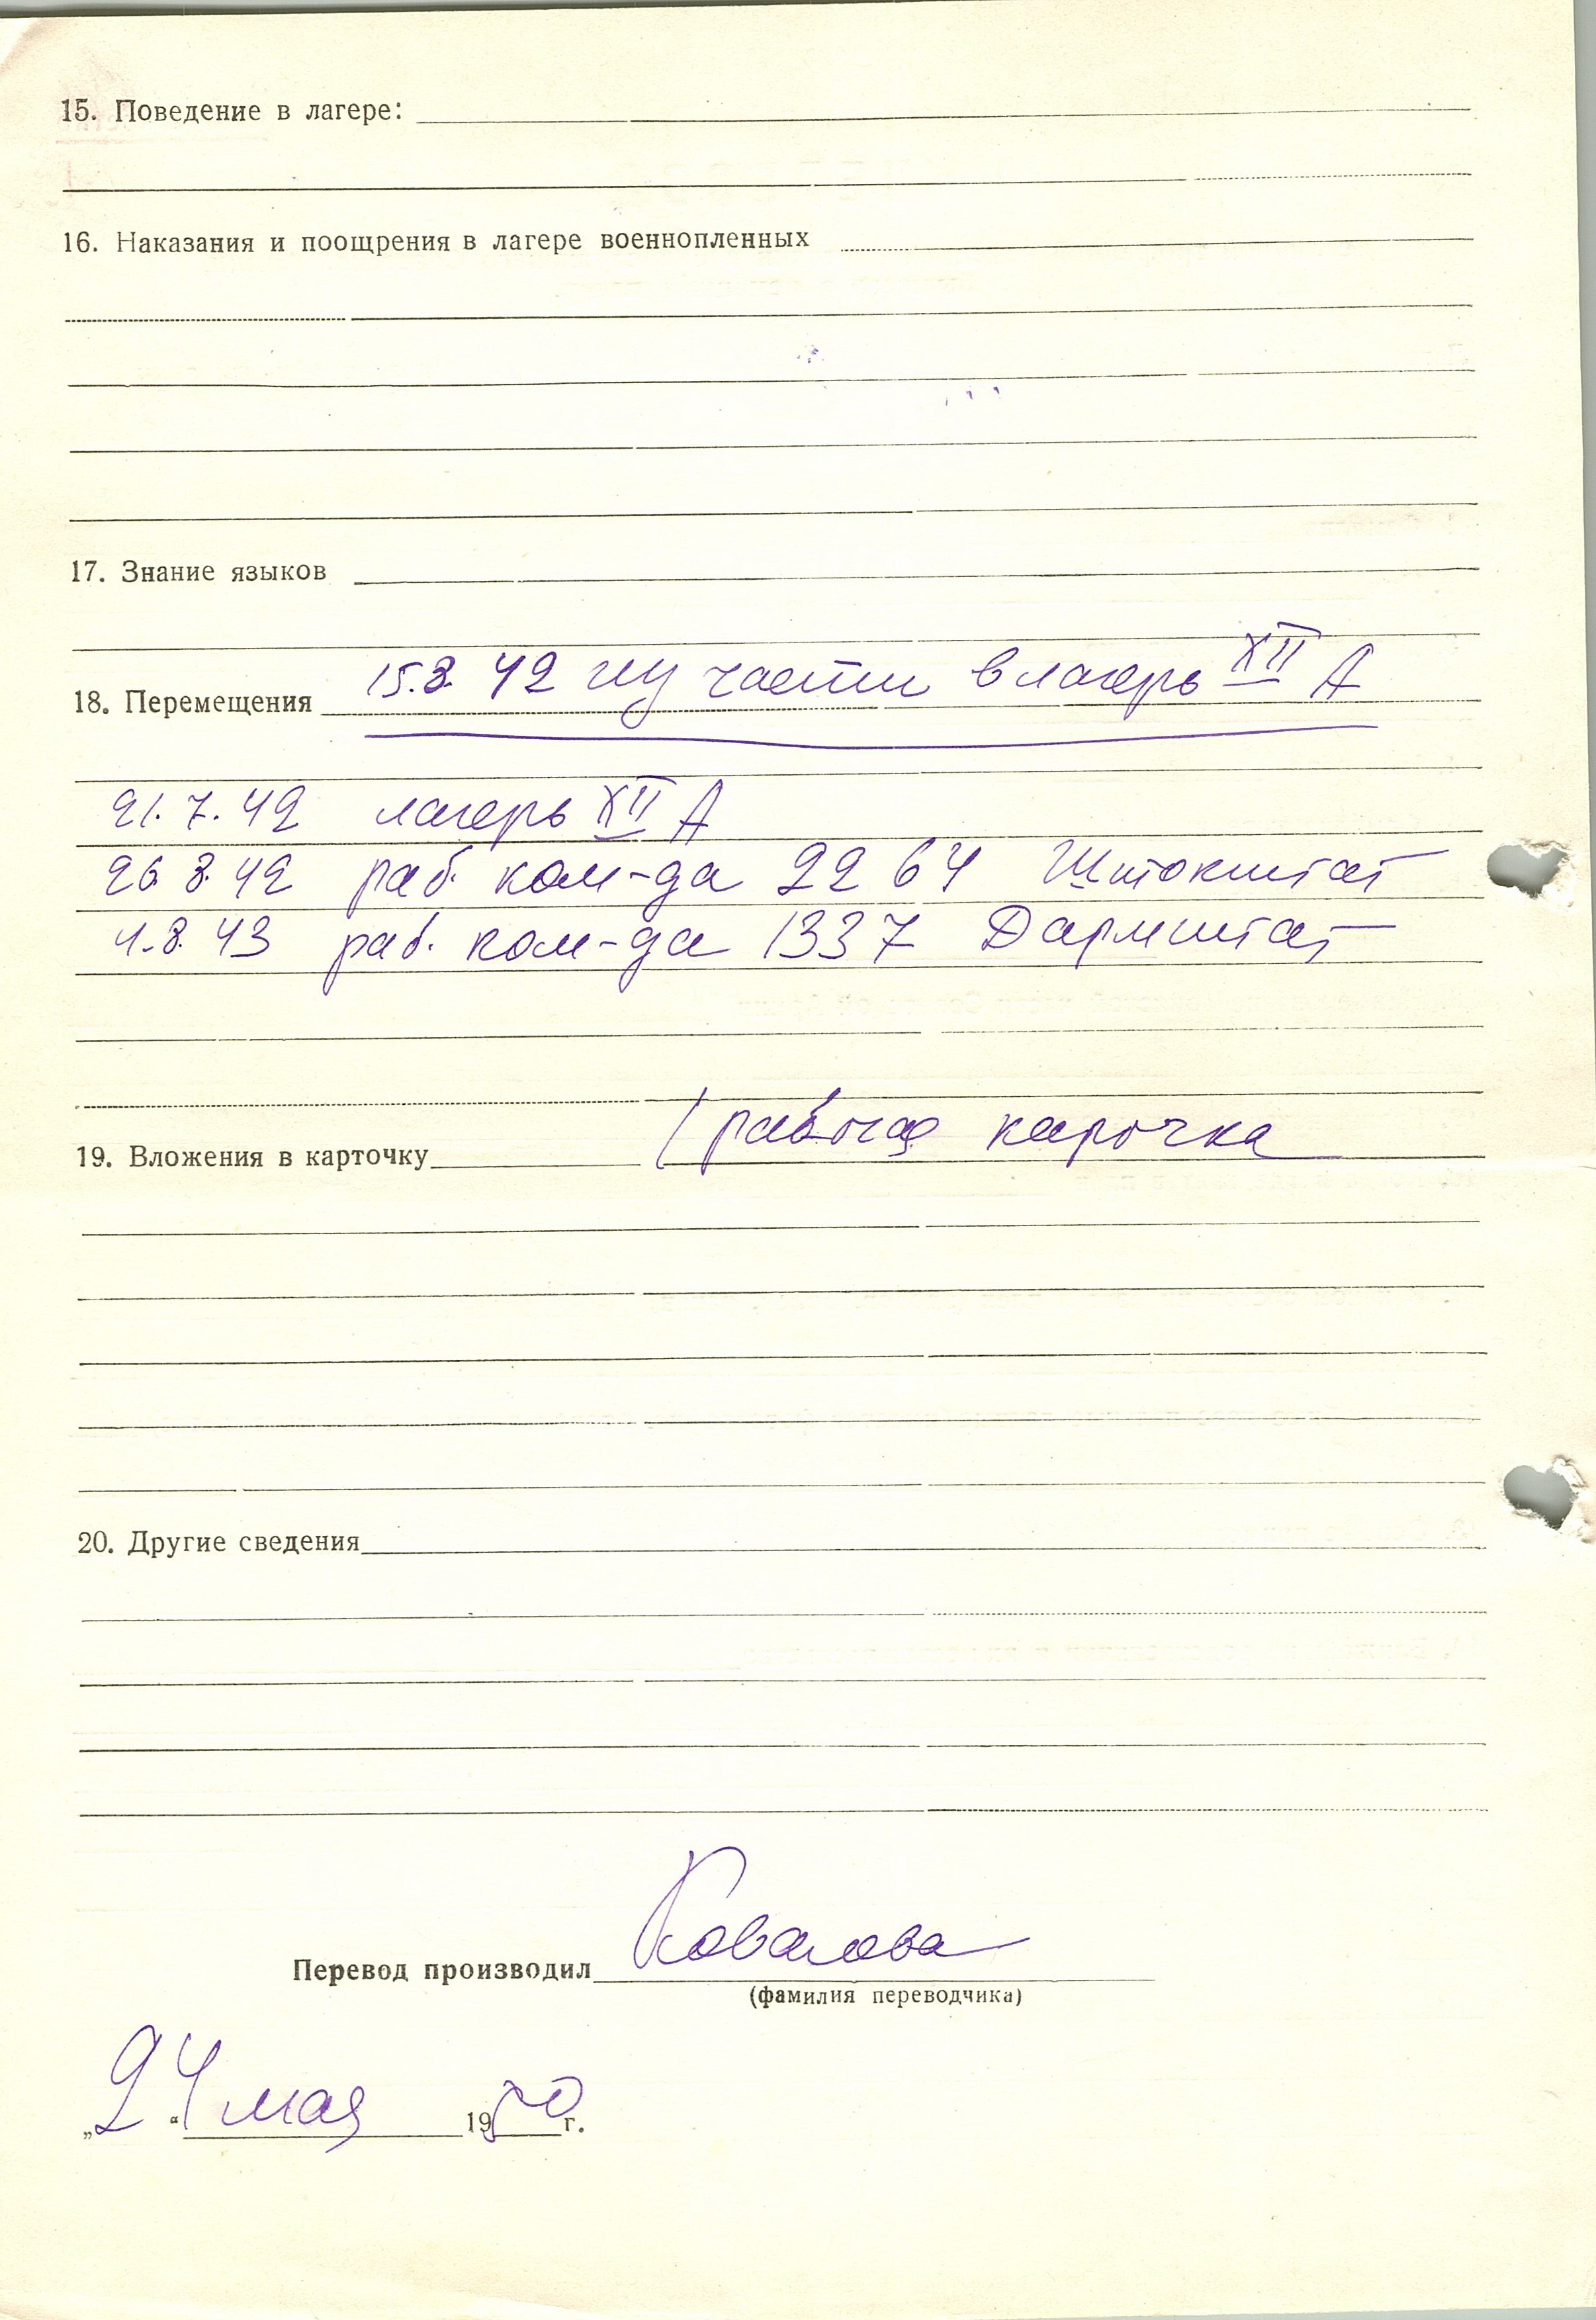 15. Поведение в лагере:
16. Наказания и поощрения в лагере военнопленных
17. Знание языков
18. Перемещения 15.8.42 из части в лагерь XII А
21.7.42 лагерь XII А
26.8.42 раб. ком-да 2264 Штокштат
4.8.43 раб. ком-да 1337 Дармштат
19. Вложения в карточку рабочая карочка
20. Другие сведения
Перевод производил Ковалова
(фамилия переводчика)
„24“ мая 1950 г.